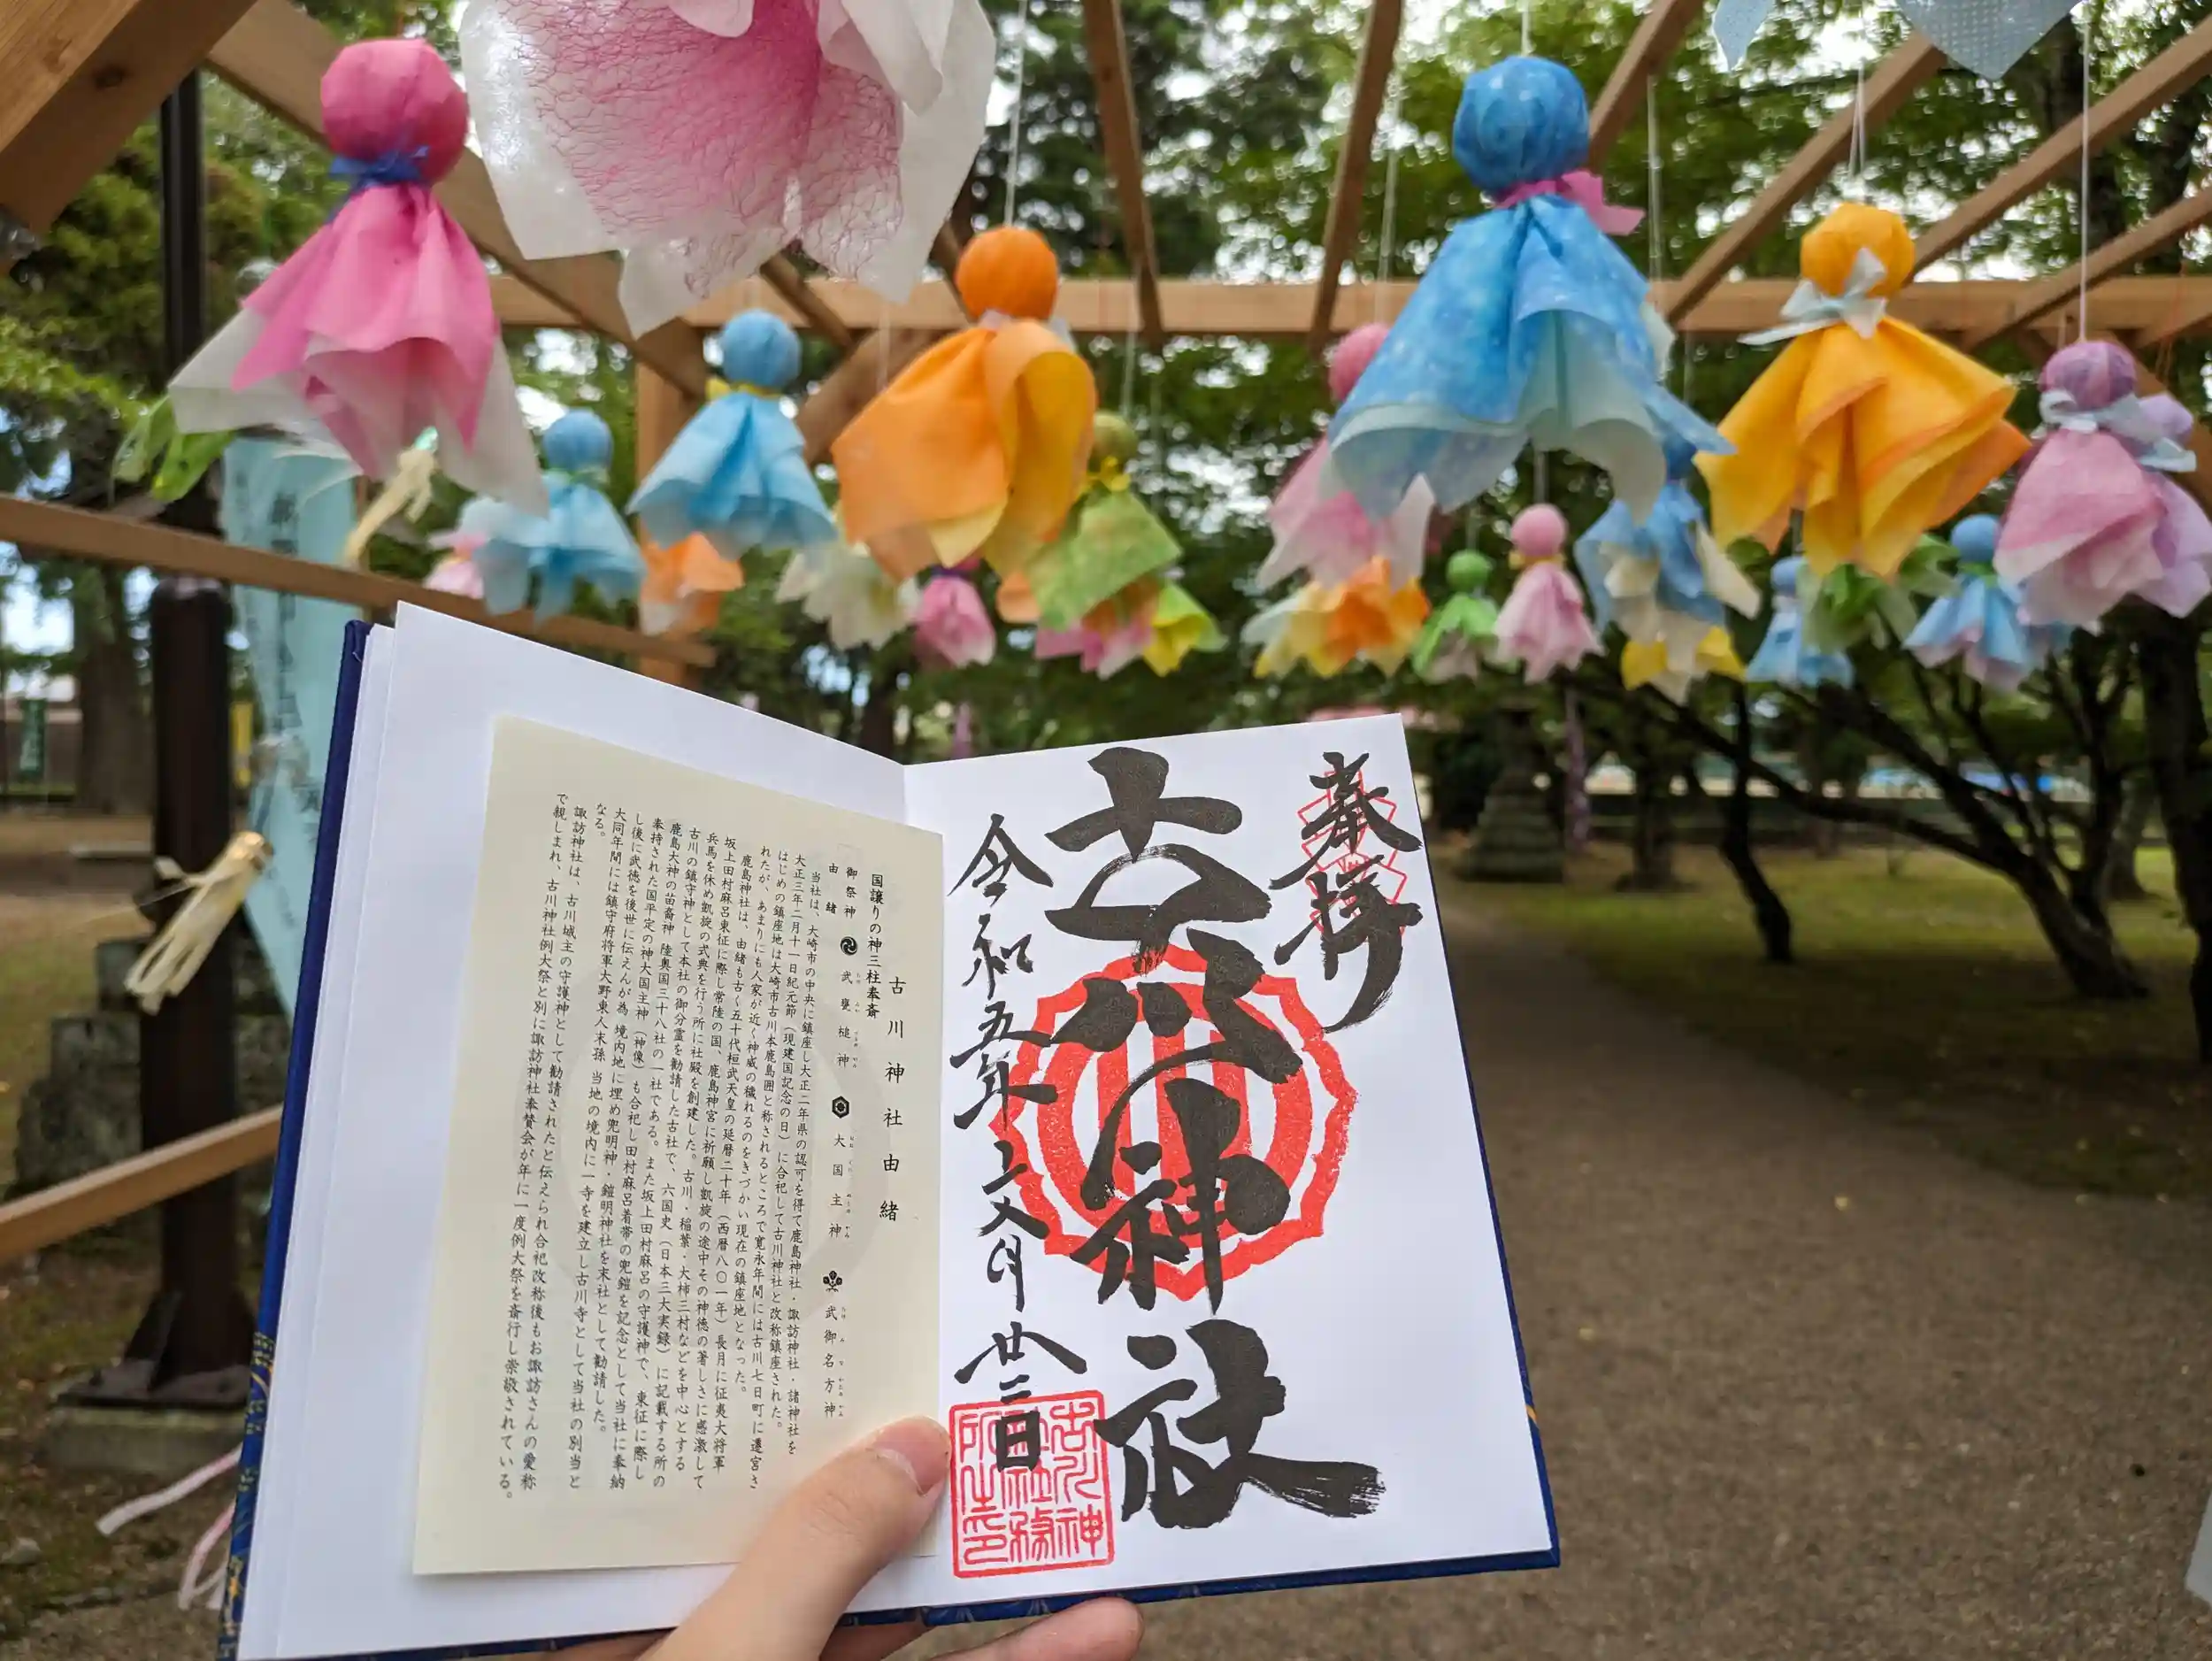 奉拝
古川神社
令和五年
廿二日
古川神社由緒
国譲りの神三柱奉斎
御祭神 武甕槌神 大国主神 武御名方神
由緒
当社は、大崎市の中央に鎮座し大正二年県の認可を得て鹿島神社・諏訪神社・諸神社を
大正三年二月十一日紀元節（現建国記念の日）に合祀して古川神社と改称鎮座された。
はじめの鎮座地は大崎市古川本鹿島囲と称されるところで寛永年間には古川七日町に遷宮さ
れたが、あまりにも人家が近く神威の穢れるのをきづかい現在の鎮座地となった。
鹿島神社は、由緒も古く五十代桓武天皇の延暦二十年（西暦八〇一年）長月に征夷大将軍
坂上田村麻呂東征に際し常陸の国、鹿島神宮に祈願し凱旋の途中その神徳の著しさに感激して
兵馬を休め凱旋の式典を行う所に社殿を創建した。古川・稲葉・大柿三村などを中心とする
古川の鎮守神として本社の御分霊を勧請した古社で、六国史（日本三大実録）に記載する所の
鹿島大神の苗裔神 陸奥国三十八社の一社である。また坂上田村麻呂の守護神で、東征に際し
奉持された国平定の神大国主神（神像）も合祀し田村麻呂着帯の兜鎧を記念として当社に奉納
し後に武徳を後世に伝えんが為 境内地に埋め兜明神・鎧明神社を末社として勧請した。
大同年間には鎮守府将軍大野東人末孫 当地の境内に一寺を建立し古川寺として当社の別当と
なる。
諏訪神社は、古川城主の守護神として勧請されたと伝えられ合祀改称後もお諏訪さんの愛称
で親しまれ、古川神社例大祭と別に諏訪神社奉賛会が年に一度例大祭を斎行し崇敬されている。